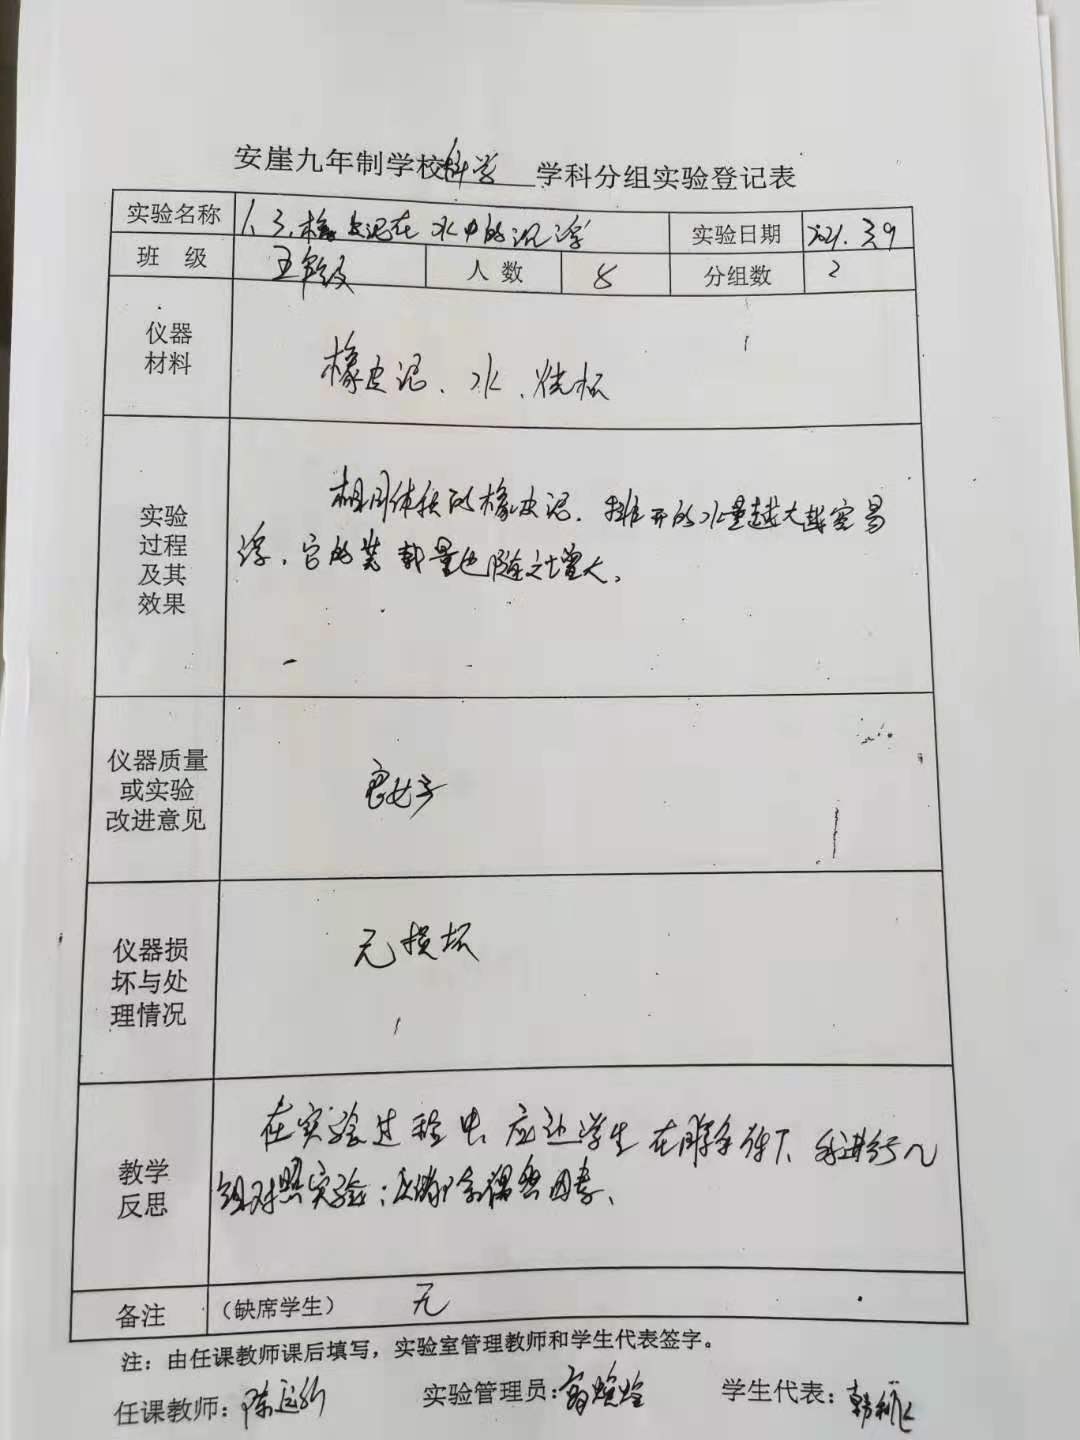 安崖九年制学校科学 学科分组实验登记表
实验名称 1、3、橡皮泥在水中的沉浮 实验日期 2021.3.9
班 级 五年级 人 数 8 分组数 2
仪器
材料
橡皮泥、水、烧杯
实验
过程
及其
效果
相同体积的橡皮泥,排开的水量越大越容易
浮,它的装载量也随之增大。
仪器质量
或实验
改进意见
良好
仪器损
坏与处
理情况
无损坏
教学
反思
在实验过程中,应让学生在 条件下,多进行几
组对照实验;以排除偶然因素。
备注 (缺席学生) 无
注:由任课教师课后填写,实验室管理教师和学生代表签字。
任课教师: 陈 实验管理员: 学生代表: 韩